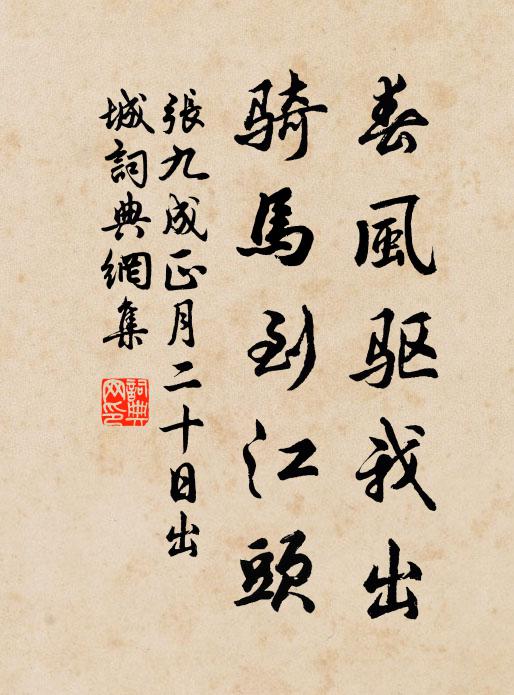 春風驱我出
騎馬到江頭
張九成正月二十日出
城詞典網集
詞典網印